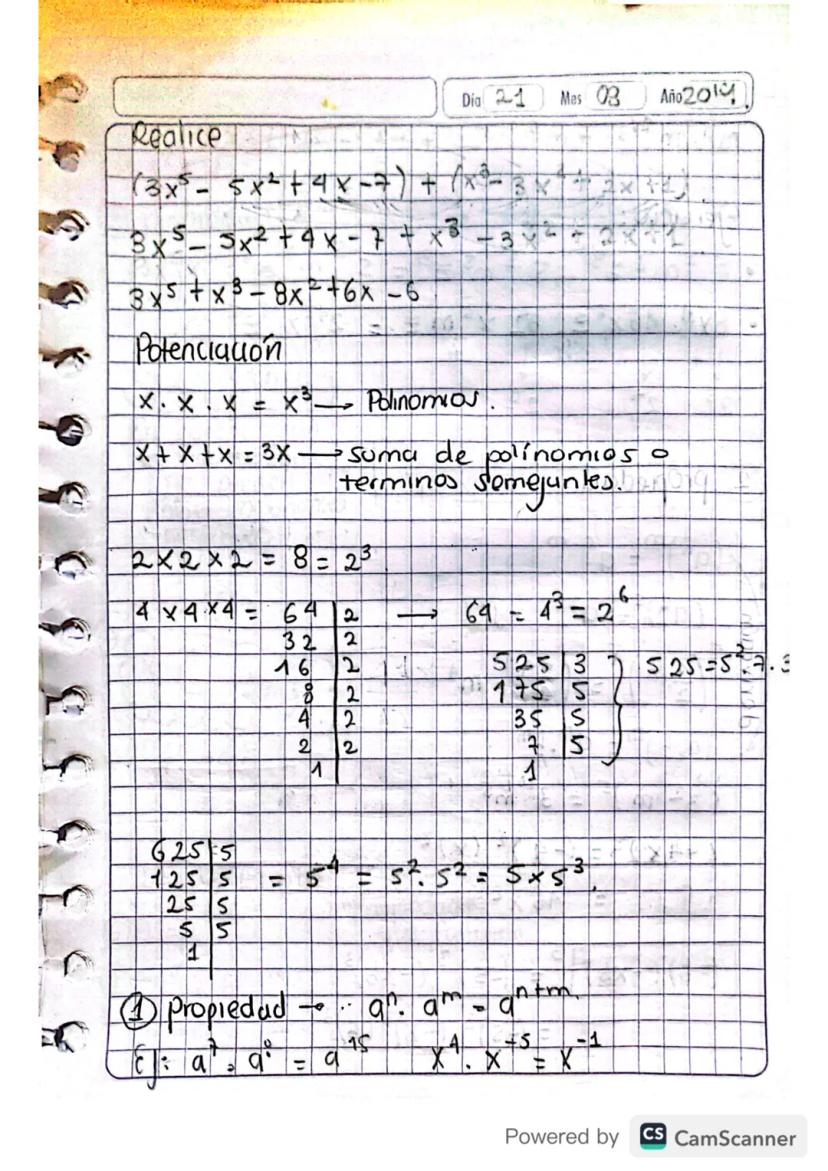 Día 21 Mes 03 Año 2019
Realice
(3x⁵ - 5x² + 4x - 7) + (x³ - 3x² + 2x + 1)
3x⁵ - 5x² + 4x - 7 + x³ - 3x² + 2x + 1
3x⁵ + x³ - 8x² + 6x - 6
Potenciación
x · x · x = x³ → Polinomios.
x + x + x = 3x → suma de polínomios o
terminos semejantes.
2 x 2 x 2 = 8 = 2³
4 x 4 x 4 = 64 | 2 → 64 = 4³ = 2⁶
32 | 2
16 | 2 525 | 3 } 525 = 5² · 7 · 3
8 | 2 175 | 5
4 | 2 35 | 5
2 | 2 7 | 5
1 | 1
625 | 5
125 | 5 = 5⁴ = 5² · 5² = 5 x 5³.
25 | 5
5 | 5
1 |
① Propiedad → aⁿ · aᵐ = aⁿ⁺ᵐ.
Ej: a⁷ · a⁸ = a¹⁵ x⁴ · x⁻⁵ = x⁻¹
Powered by CS CamScanner